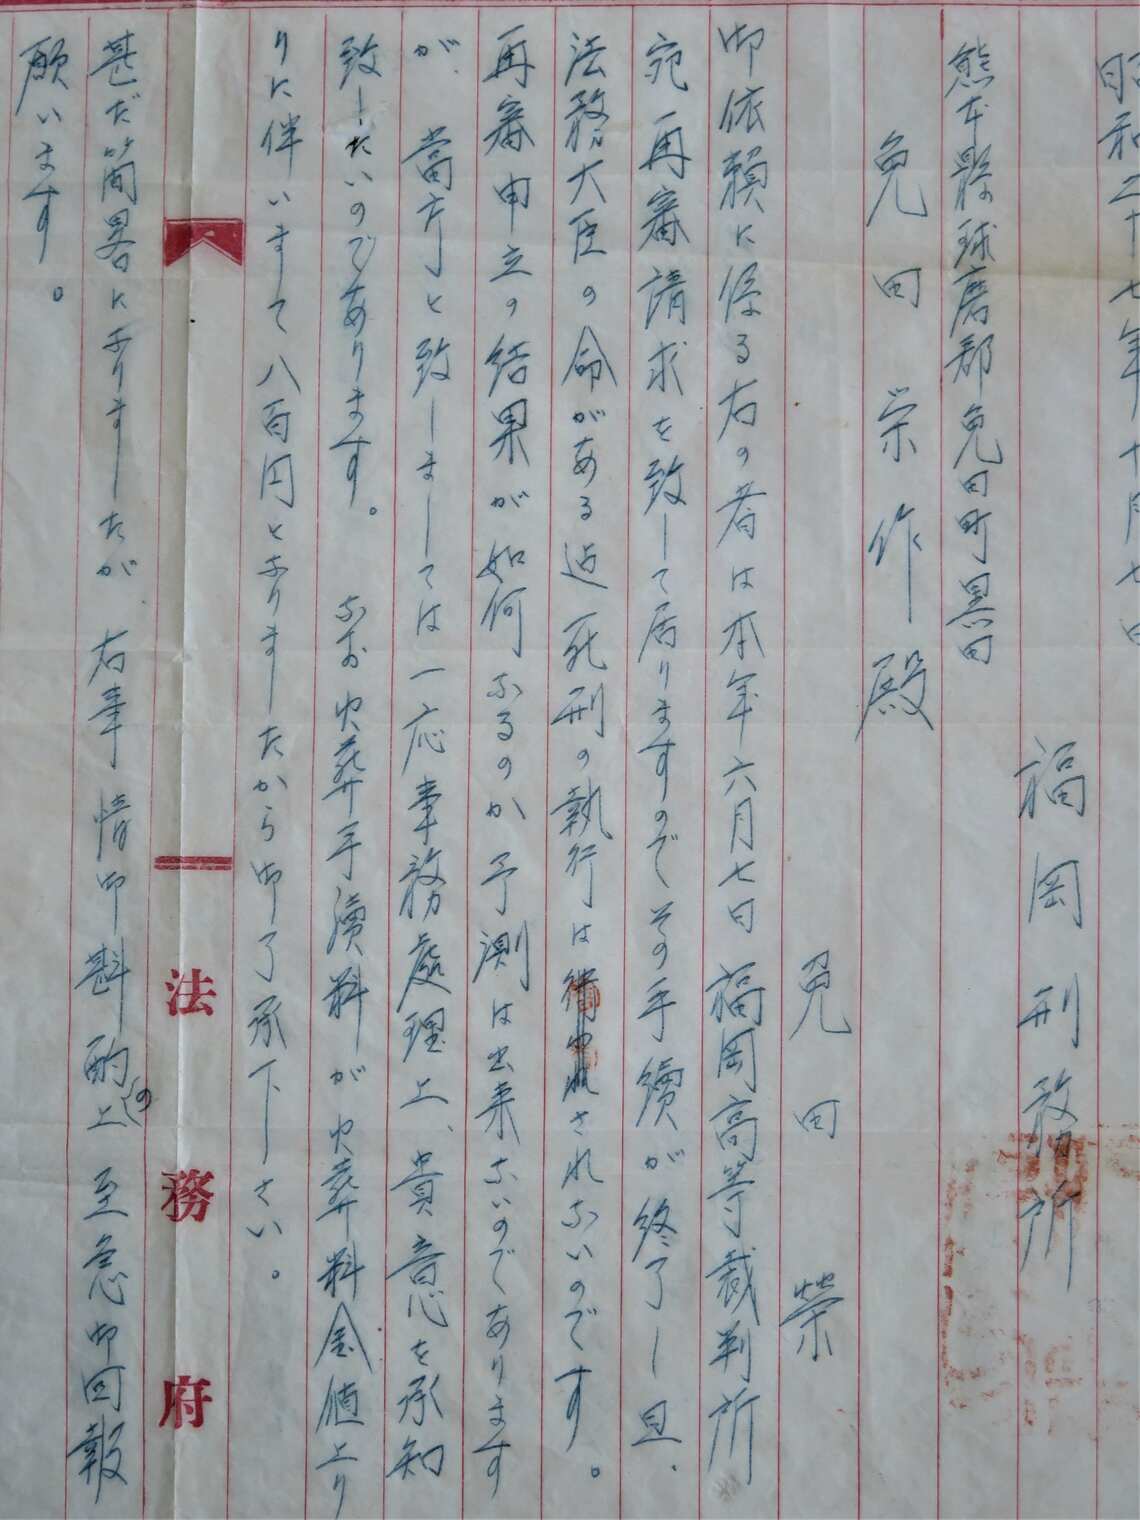 昭和二十七年十月七日
福岡刑務所
熊本縣球磨郡免田町黒田
免田栄作殿
免田榮
御依頼に係る右の者は本年六月七日福岡高等裁判所
宛再審請求を致して居りますのでその手續が終了し且、
法務大臣の命がある迄死刑の執行はされないのです。
再審申立の結果が如何なるのか予測は出来ないのであります
が、當方と致しましては一応事務處理上、貴意を承知
致したいのであります。なお火葬手續料が火葬料金値上り
りに伴いまして八百円となりましたから御了承下さい。
法務府
甚だ簡畧になりましたが右事情御斟酌の上至急御回報
願います。